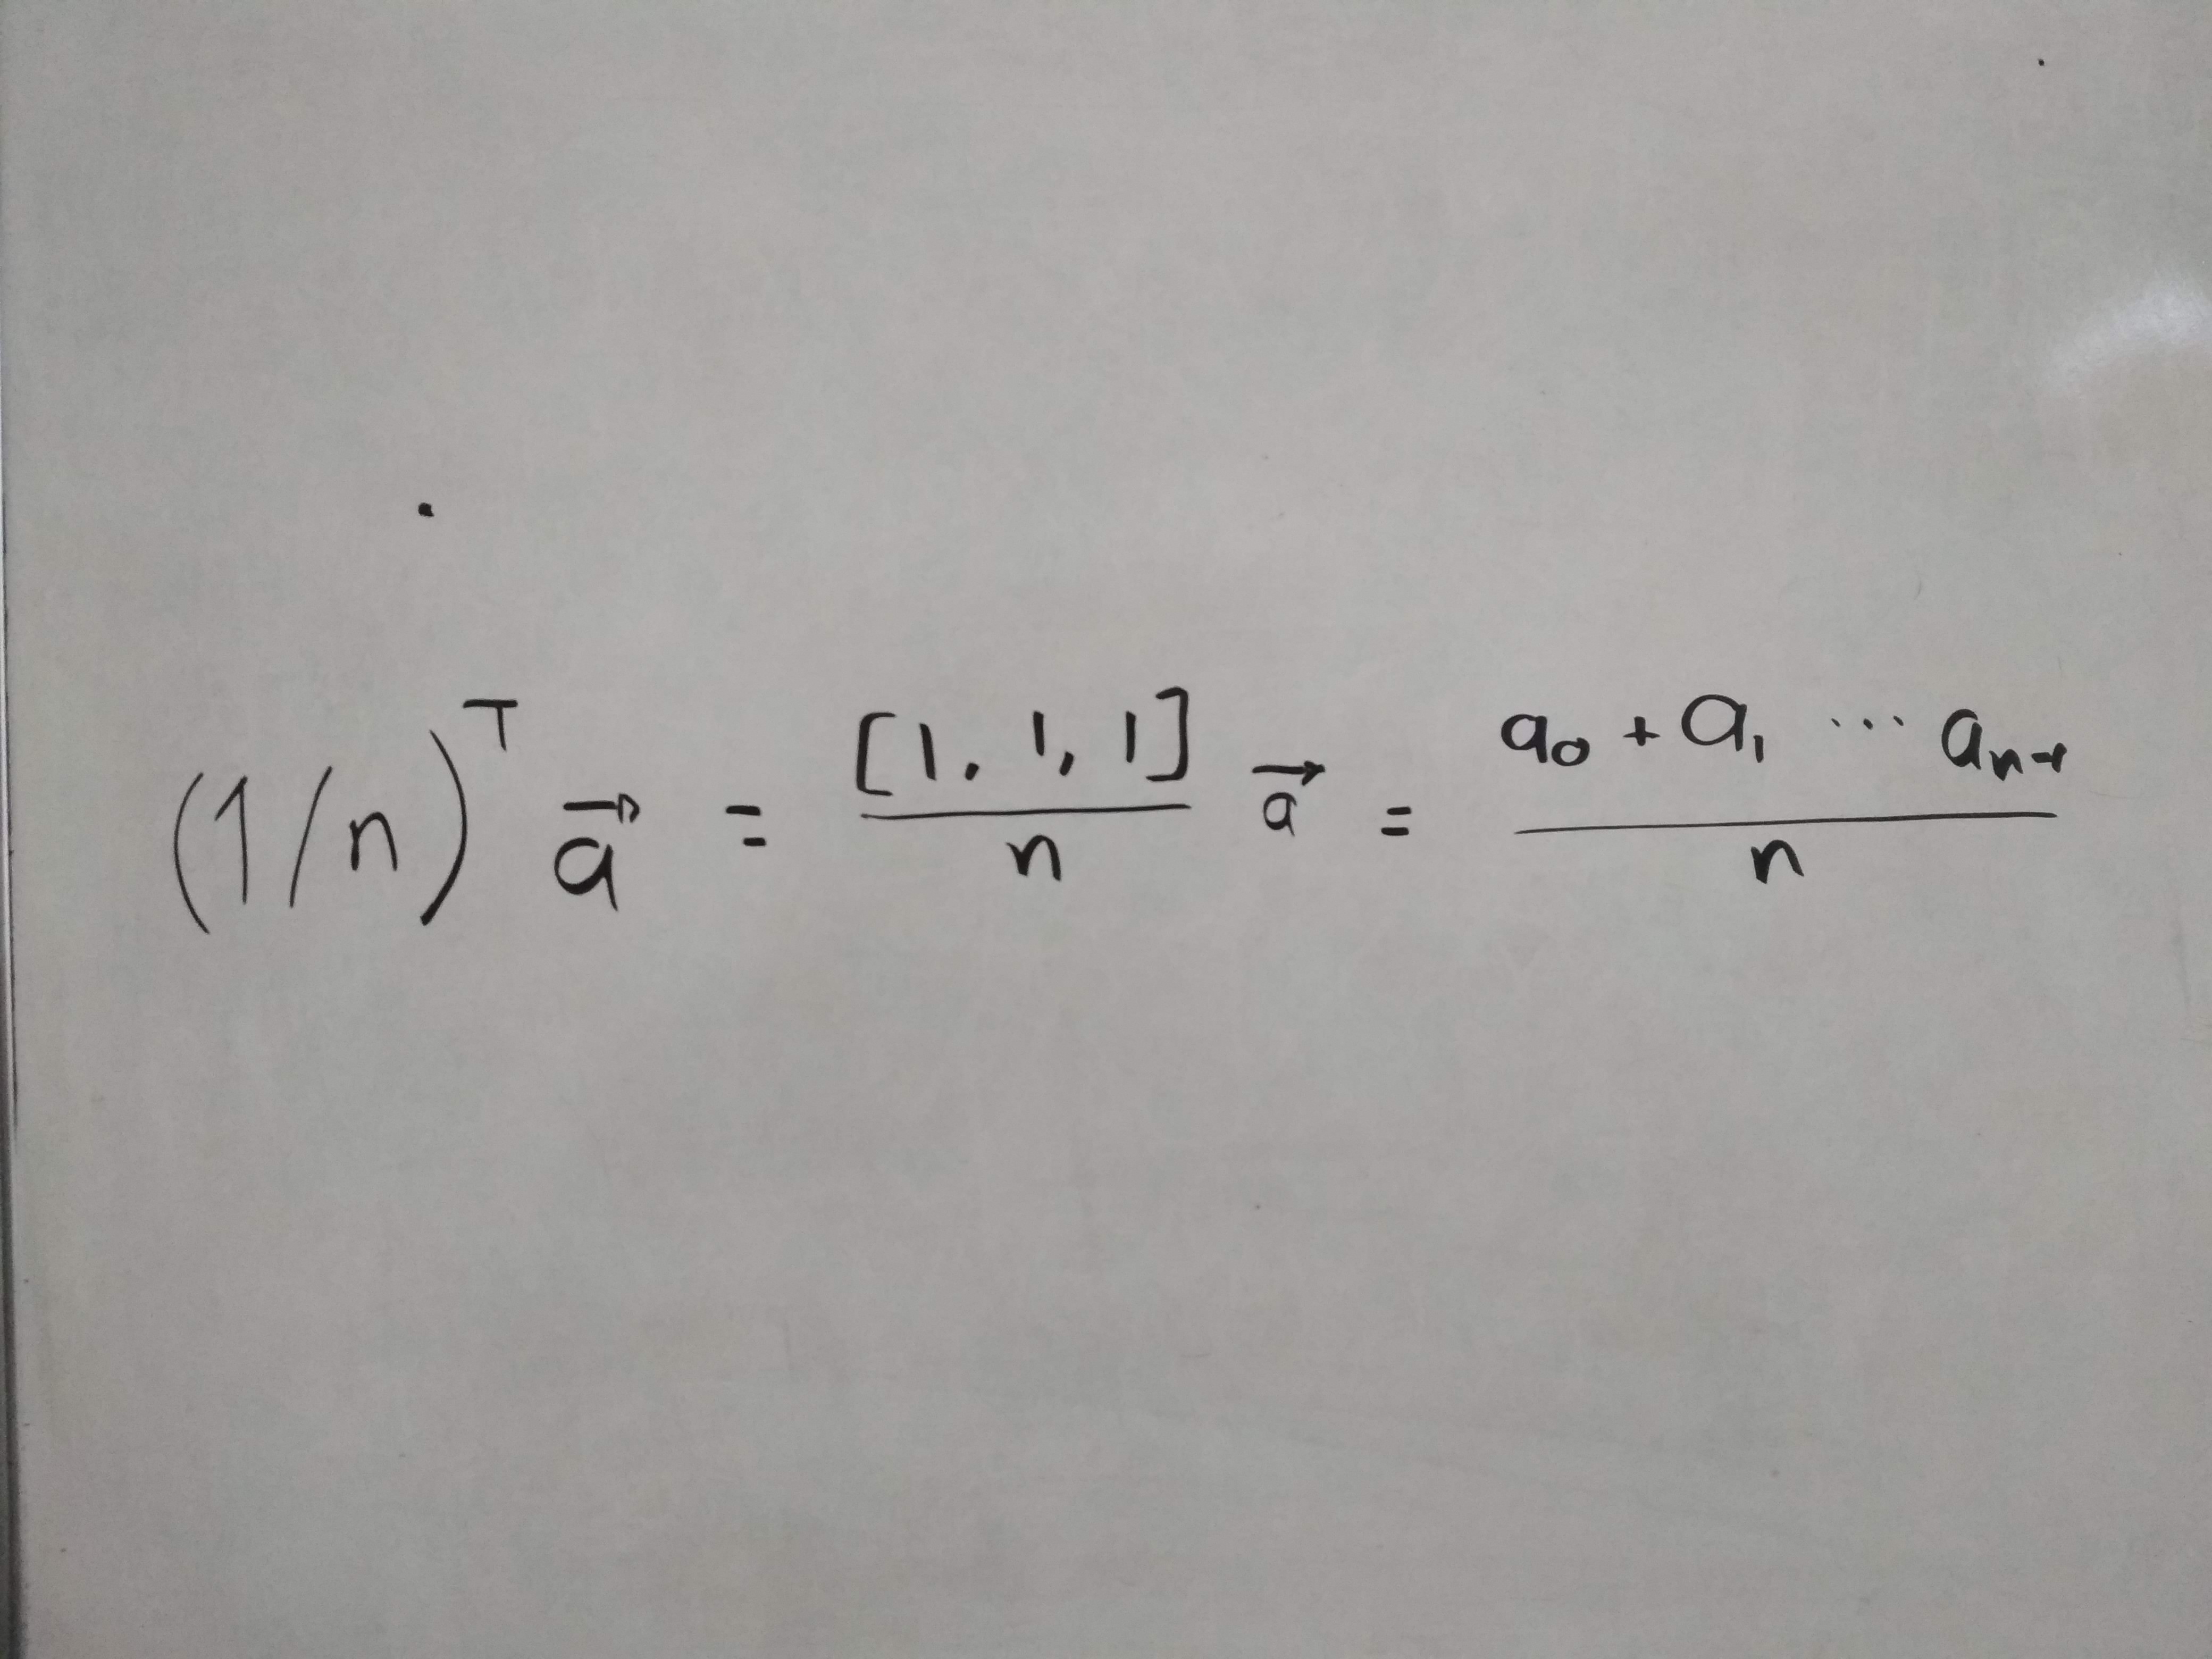 (1/n)ᵀ a⃗ = [1, 1, 1]/n a⃗ = (a₀ + a₁ ... aₙ₋₁)/n